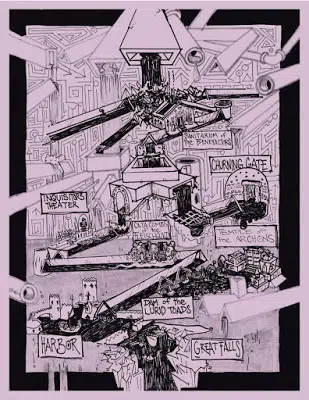 SANITARIUM of
THE BENEFACTORS
CHURNING GATE
INQUISITORS
THEATER
CATACOMBS
of the
TEMPLE of
the ARCHONS
DAM of the
LURID TOADS
HARBOR
GREAT FALLS